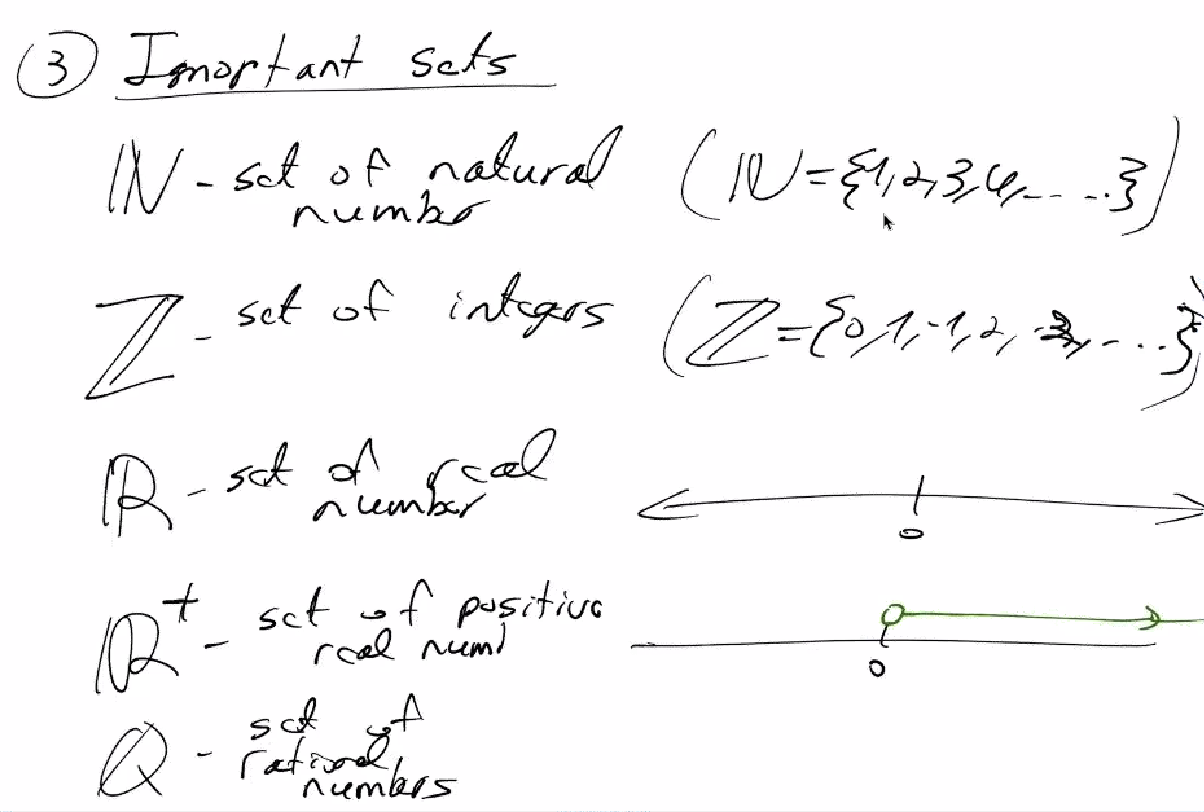 3 Imortant sets
ℕ - set of natural (ℕ={1,2,3,4,.....})
number
ℤ - set of integers (ℤ={0,1,-1,2,-2,....})
ℝ - set of real
number
0
ℝ⁺ - set of positive
real num
0
ℚ - set of
rational
numbers